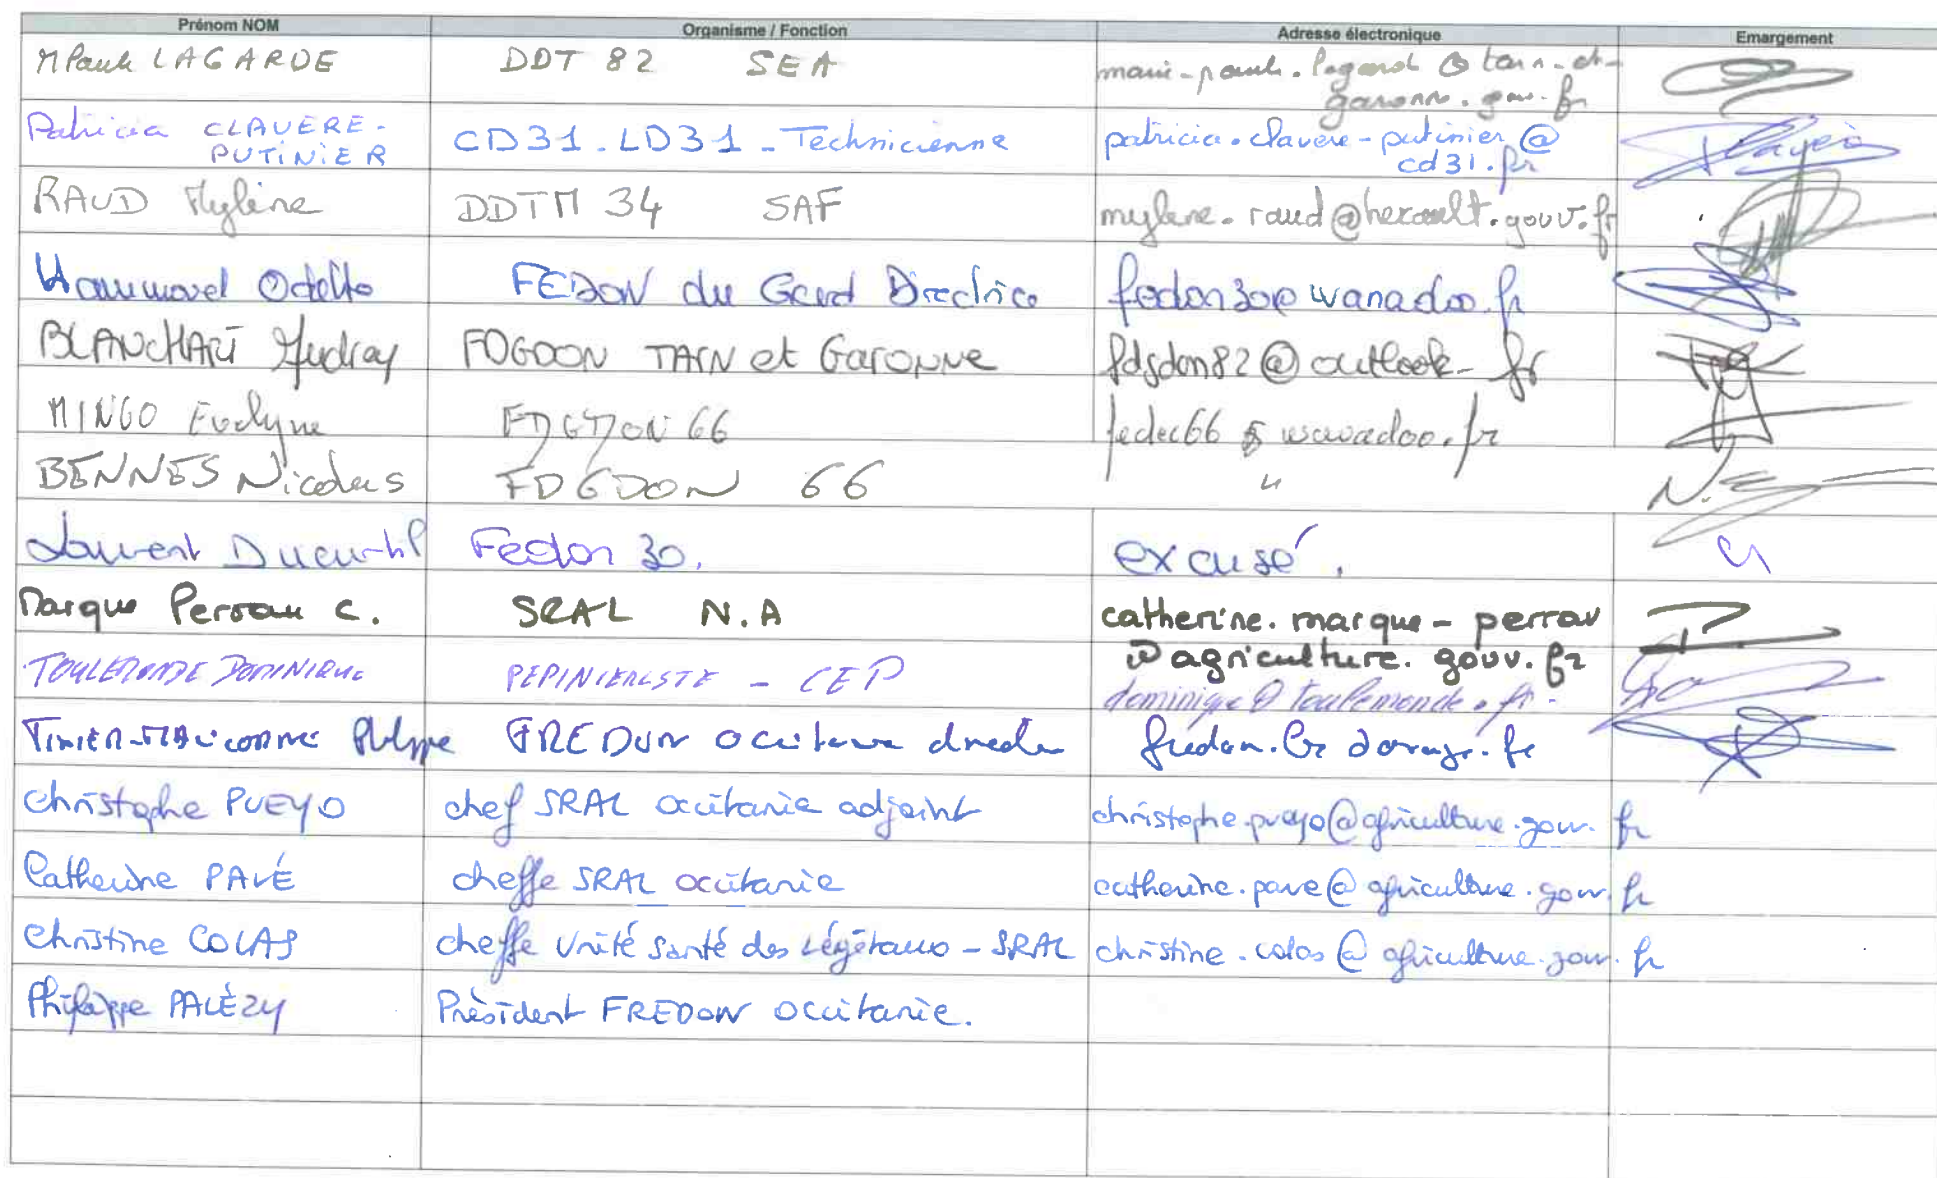 Prénom NOM Organisme / Fonction Adresse électronique Emargement
MPaule LAGARDE DDT 82 SEA marie-paule.lagarde@tarn-et-
garonne.gouv.fr
Patricia CLAVERE- CD31.LD31-Technicienne patricia.clavere-putinier@
PUTINIER cd31.fr
RAUD Mylène DDTM 34 SAF mylene.raud@herault.gouv.fr
Odette FEDON du Gard Directrice fedon30@wanadoo.fr
BLANCHART Audray FDGDON TARN et Garonne fdgdon82@outlook.fr
MINGO Evelyne FDGDON 66 fedec66@wanadoo.fr
BENNES Nicolas FDGDON 66 "
Laurent Fedon 30. excusé.
Marque Perrau C. SRAL N.A catherine.marque-perrau
@agriculture.gouv.fr
TOULEMONDE DOMINIQUE PEPINIERISTE - CEP dominique@toulemonde.fr
Philippe FREDON Occitanie
Christophe PUEYO chef SRAL Occitanie adjoint christophe.pueyo@agriculture.gouv.fr
Catherine PAVÉ cheffe SRAL Occitanie catherine.pave@agriculture.gouv.fr
Christine COLAS cheffe Unité Santé des Végétaux - SRAL christine.colas@agriculture.gouv.fr
Philippe PALÉZY Président FREDON Occitanie.